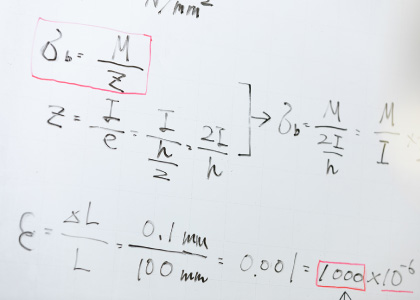 N/mm²
σb = M/Z
Z = I/e = I/(h/2) = 2I/h → σb = M/(2I/h) = M/I ×
ε = ΔL/L = 0.1 mm/100 mm = 0.001 = 1000 × 10⁻⁶